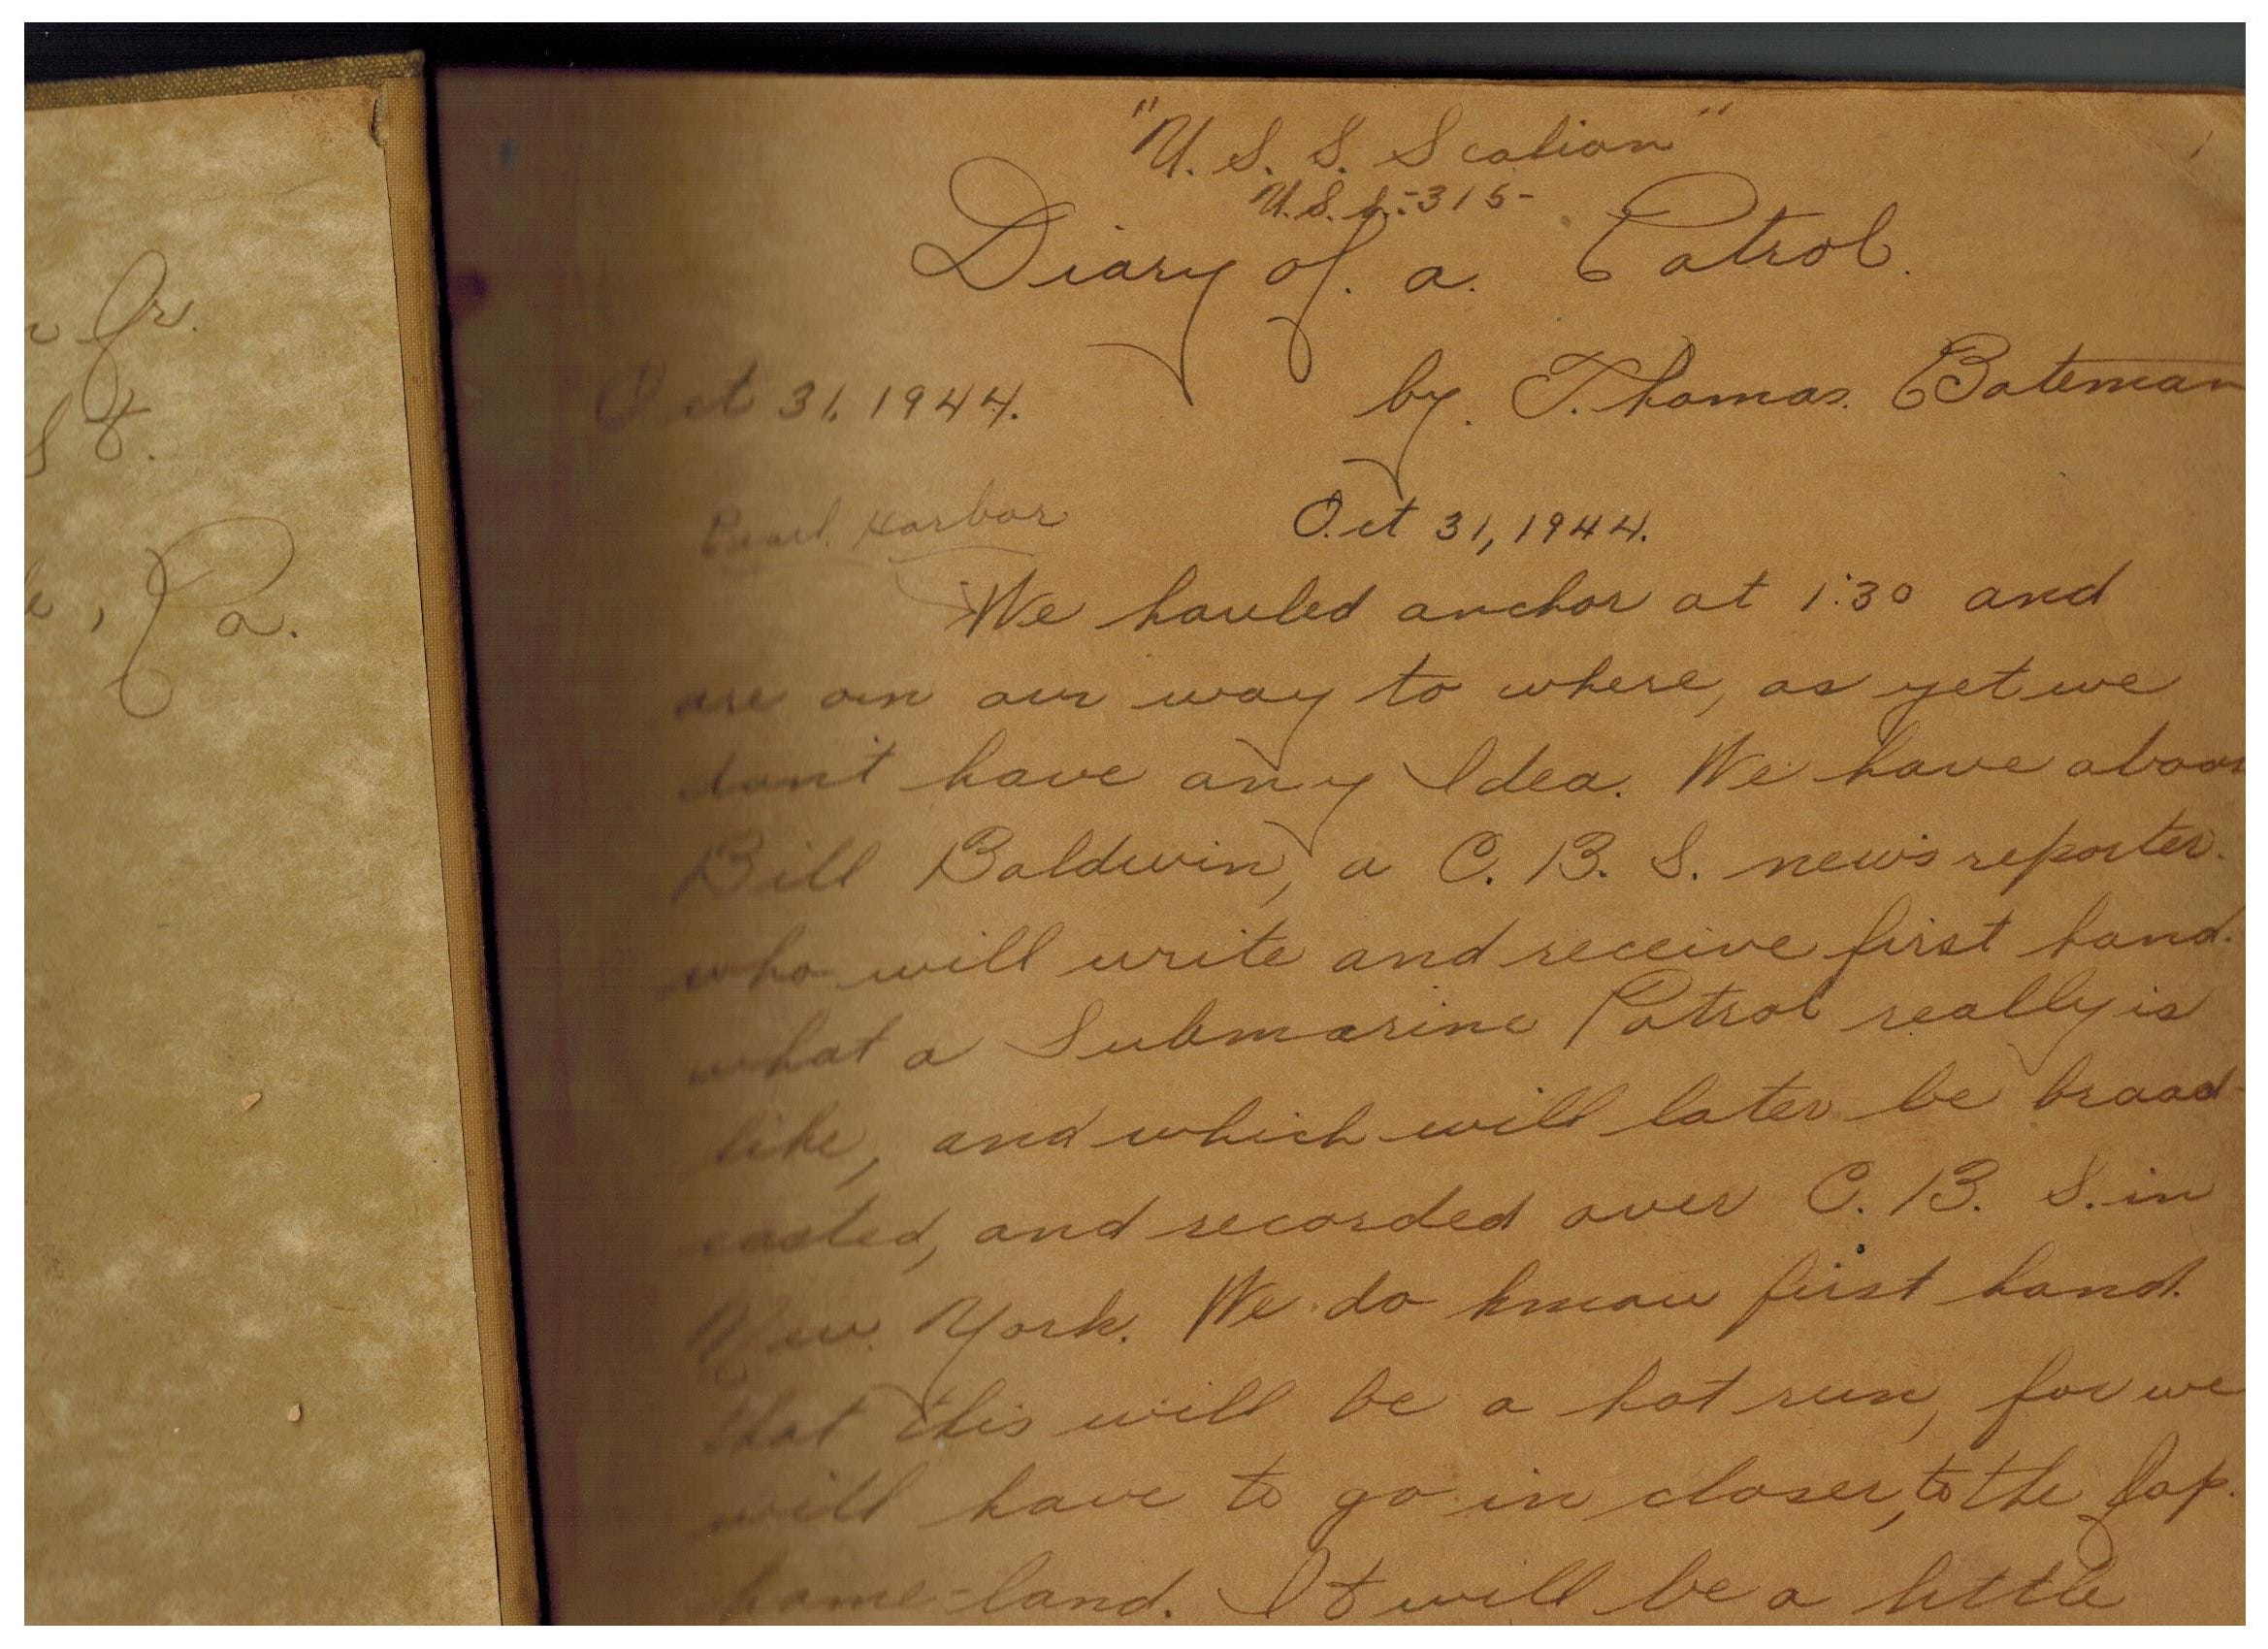 r Jr.
St.
e, Pa.
1
"U. S. S. Scalion"
U.S.S.-315-
Diary of. a. Patrol.
Oct 31, 1944. by. Thomas. Bateman
Pearl. Harbor Oct 31, 1944.
We hauled anchor at 1:30 and
are on our way to where, as yet we
don't have any Idea. We have aboar
Bill Baldwin, a C. B. S. news reporter.
who will write and receive first hand.
what a Submarine Patrol really is
like, and which will later be broad-
casted, and recorded over C. B. S. in
New. York. We do know first hand.
that this will be a hot run, for we
will have to go in closer, to the Jap.
home-land. It will be a little